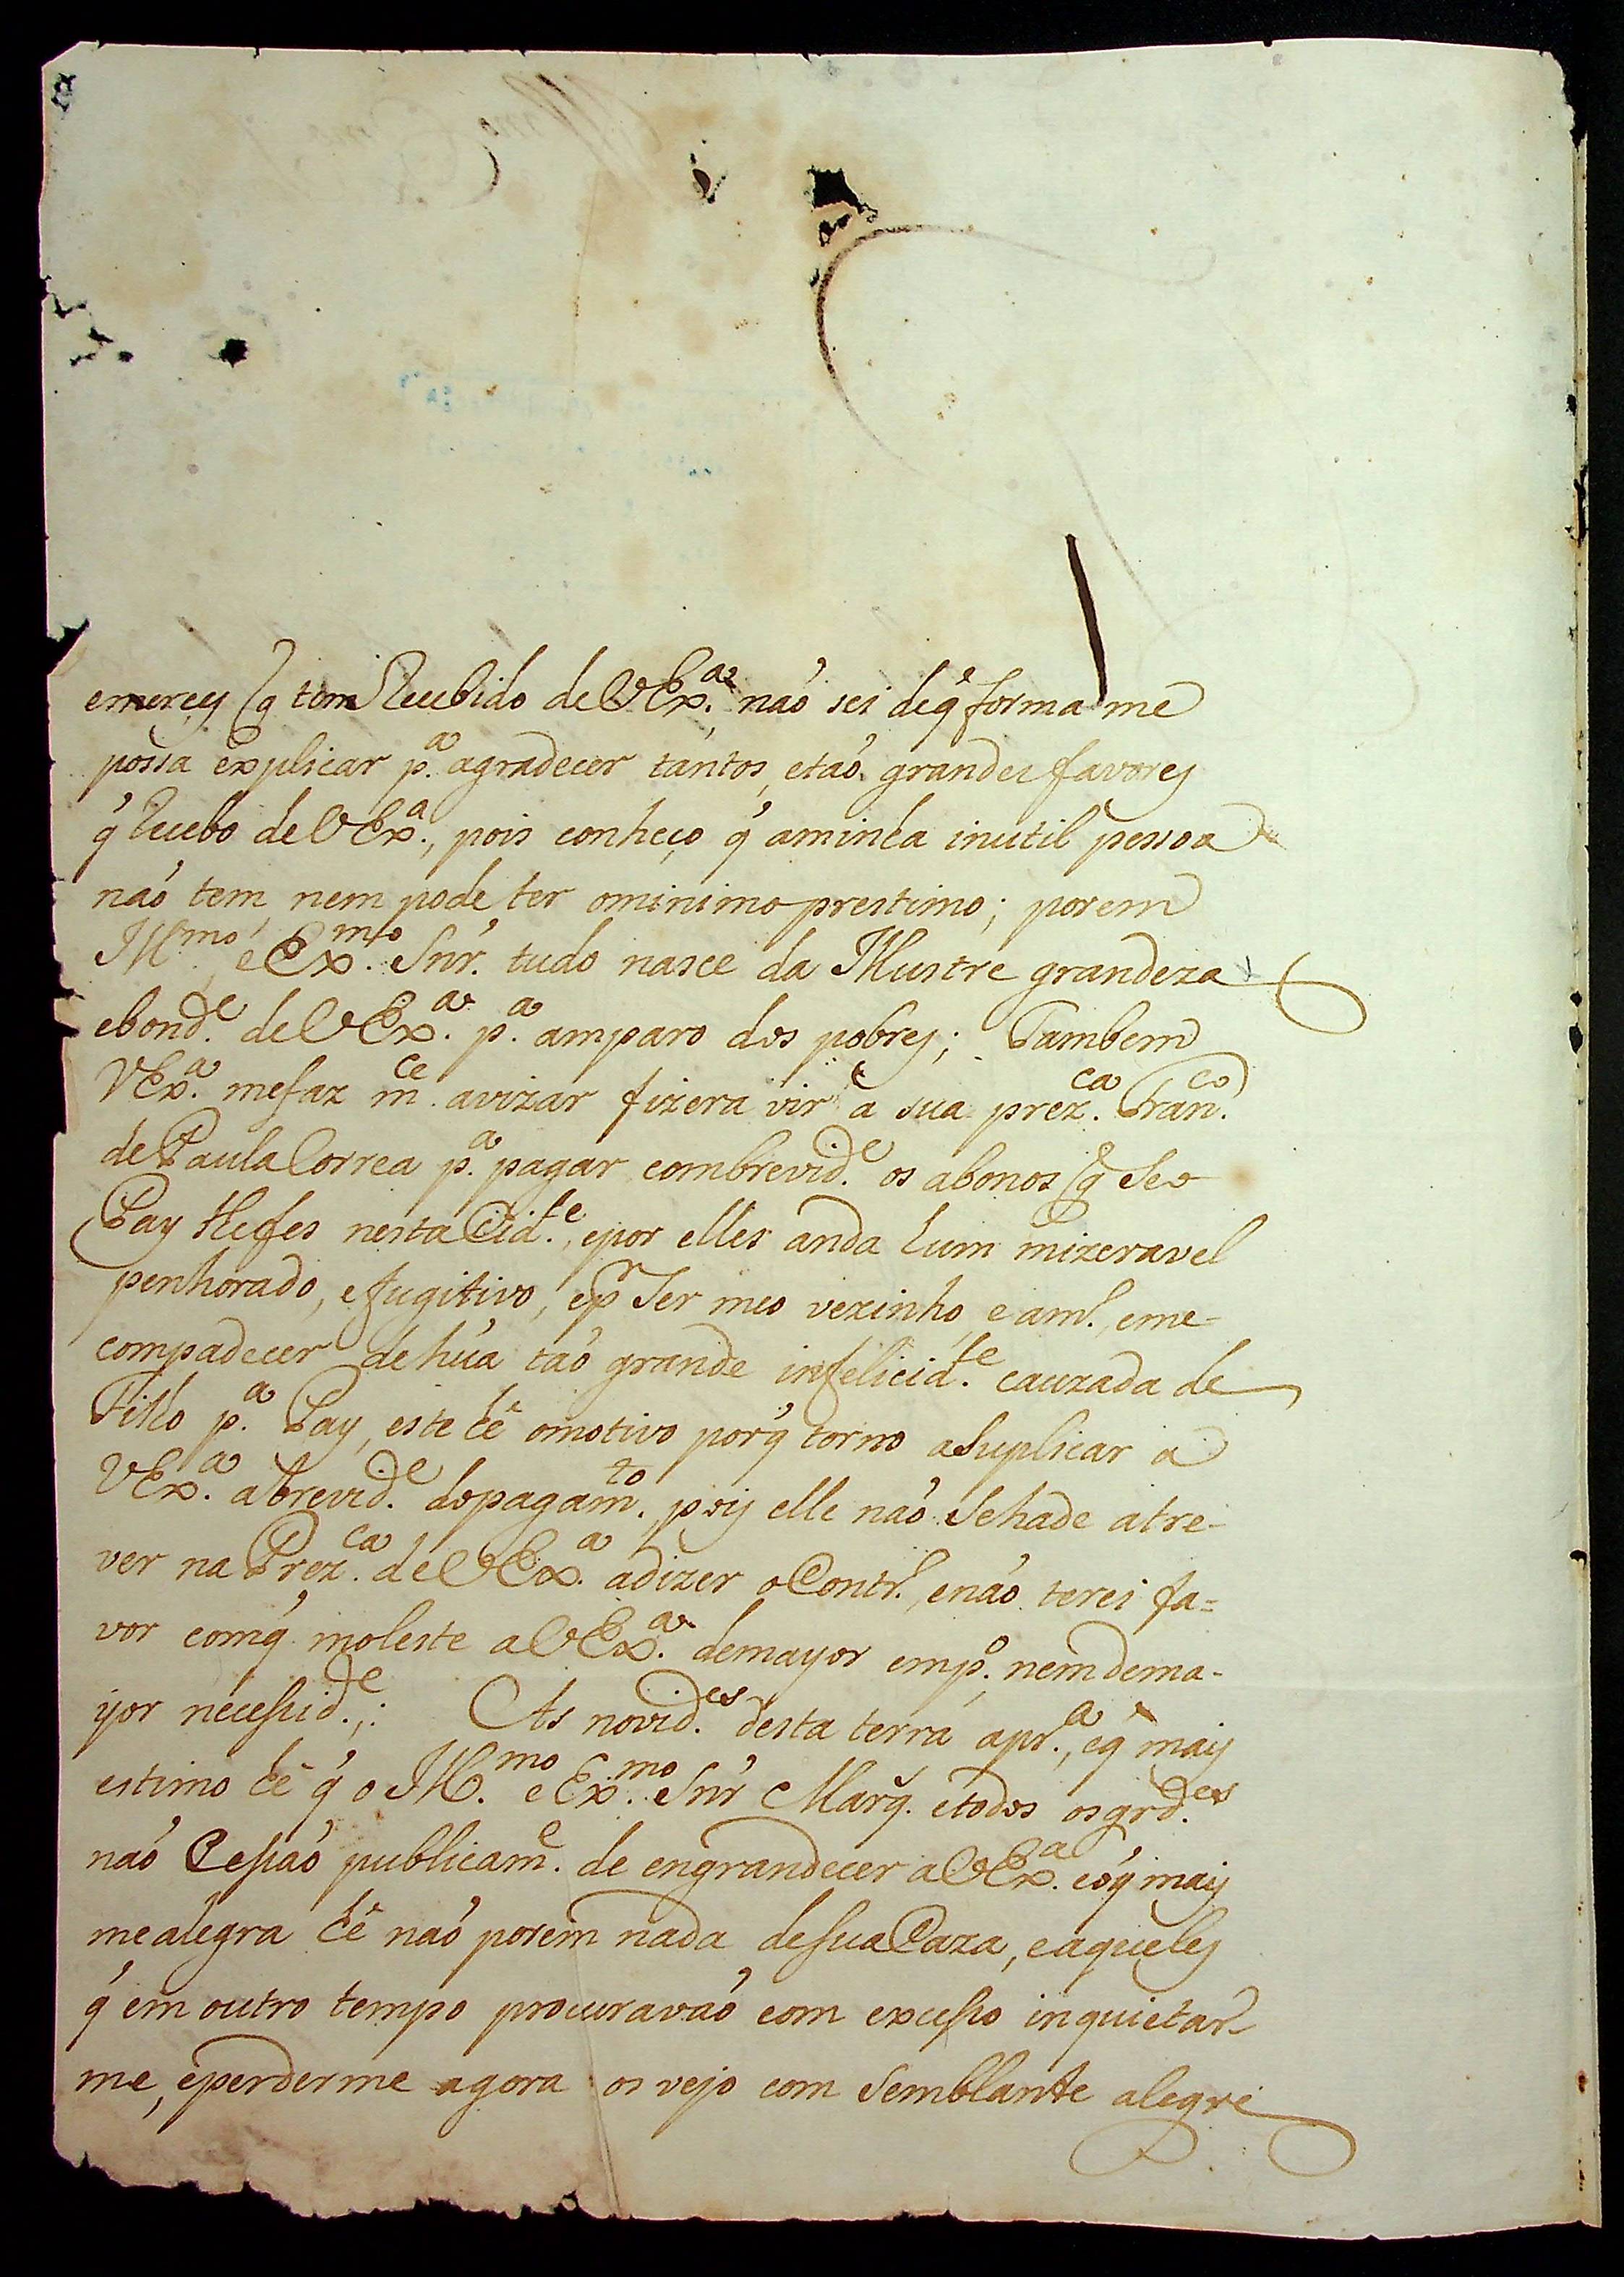 emercy q̃ tem Recebido de VEx.ª não sei deq̃ forma me
possa explicar p.ª agradecer tantos, etaõ grandes favorey
q̃ Recebo de VEx.ª, pois conheço q̃ aminha inutil pessoa
naõ tem, nem pode ter ominimo prestimo; porem
Ill.mo e Ex.mo Snr. tudo nasce da Illustre grandeza
ebond.e de VEx.ª p.ª amparo dos pobrey; Tambem
VEx.ª mefaz m.ce avizar fizera vir á sua prez.ca Fran.co
de Paula Correa p.ª pagar combrevid.e os abonos q̃ Seo
Pay lhefes nesta Cid.e, epor elles anda hum mizeravel
penhorado, efugitivo, ep.r Ser meo vezinho, e am.o, eme-
compadecer dehúa taõ grande infelicid.e cauzada de
Filho p.ª Pay, este hé omotivo porq̃ torno aSuplicar a
VEx.ª abrevid.e dopagam.to, poiy elle naõ Sehade atre-
ver na Prez.ca de VEx.ª adizer oContr.o, enaõ terei fa=
vor comq̃ moleste aVEx.ª demayor emp.o, nemdema-
yor necessid.e; As novid.es desta terra apr.ª, eq̃ maiy
estimo hé q̃ o Ill.mo e Ex.mo Snr Marq̃. etodos osgrd.es
naõ Cessaõ publicam.e de engrandecer aVEx.ª eóq̃ maiy
mealegra hé naõ porem nada desuaCaza, eaqueley
q̃ em outro tempo procuravaõ com excesso inquietar-
me, eperderme agora os vejo com Semblante alegre